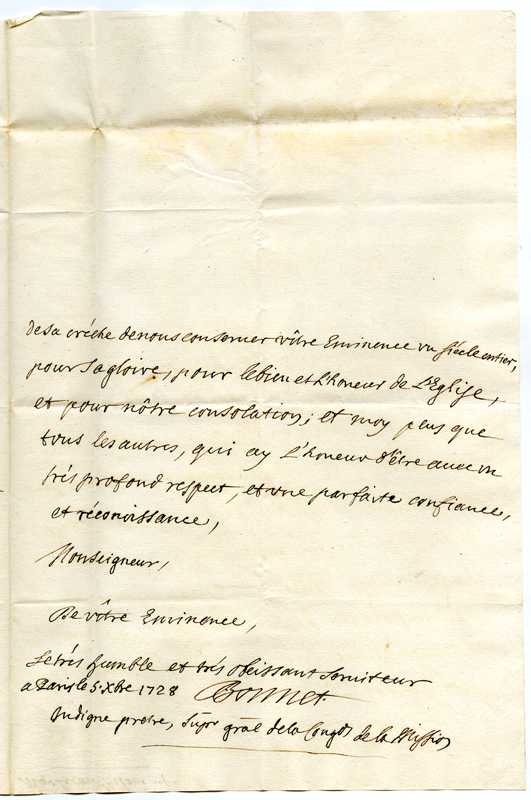 de sa créche de nous conserver vôtre Eminence un siécle entier,
pour sa gloire, pour le bien et L'honeur de L'Eglise,
et pour nôtre consolation; et moy plus que
tous les autres, qui ay L'honeur d'être avec un
trés profond respect, et une parfaite confiance,
et réconoissance,
Monseigneur,
De vôtre Eminence,
Le trés humble et trés obeissant serviteur
a Paris le 5. Xbre 1728 Bonnet.
Indigne pretre, supr gñal de la Congõn de la Mission